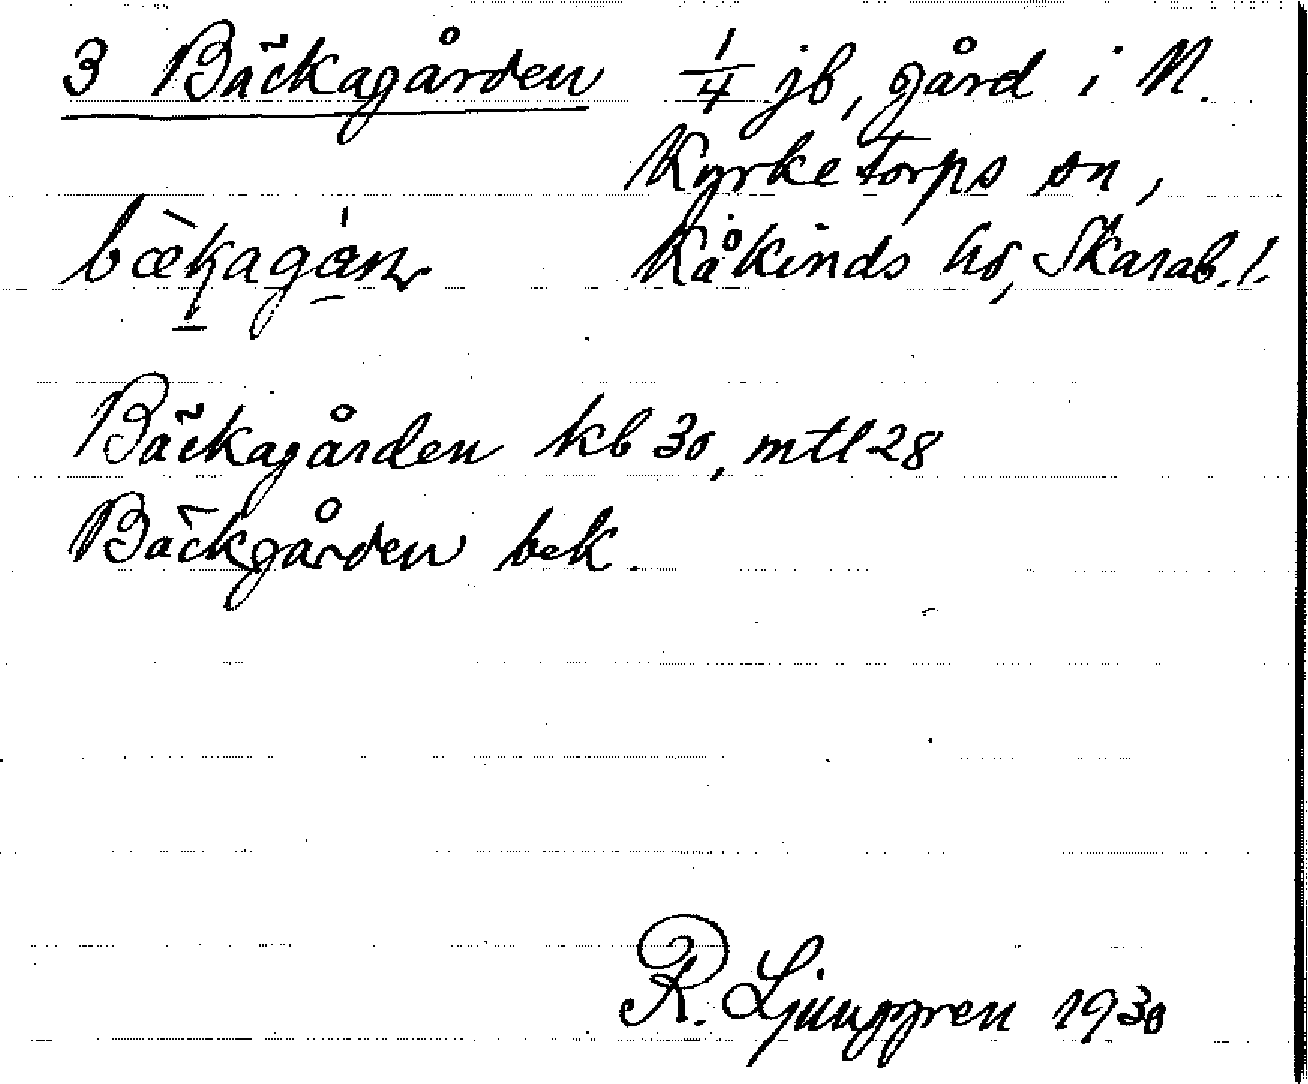 3 Bäckagården 1/4 jb, gård i N.
Kyrketorps sn,
bækagán Kåkinds hd, Skarab. l.
Bäckagården kb 30, mtl 28
Bäckgården bek.
R. Ljunggren 1930